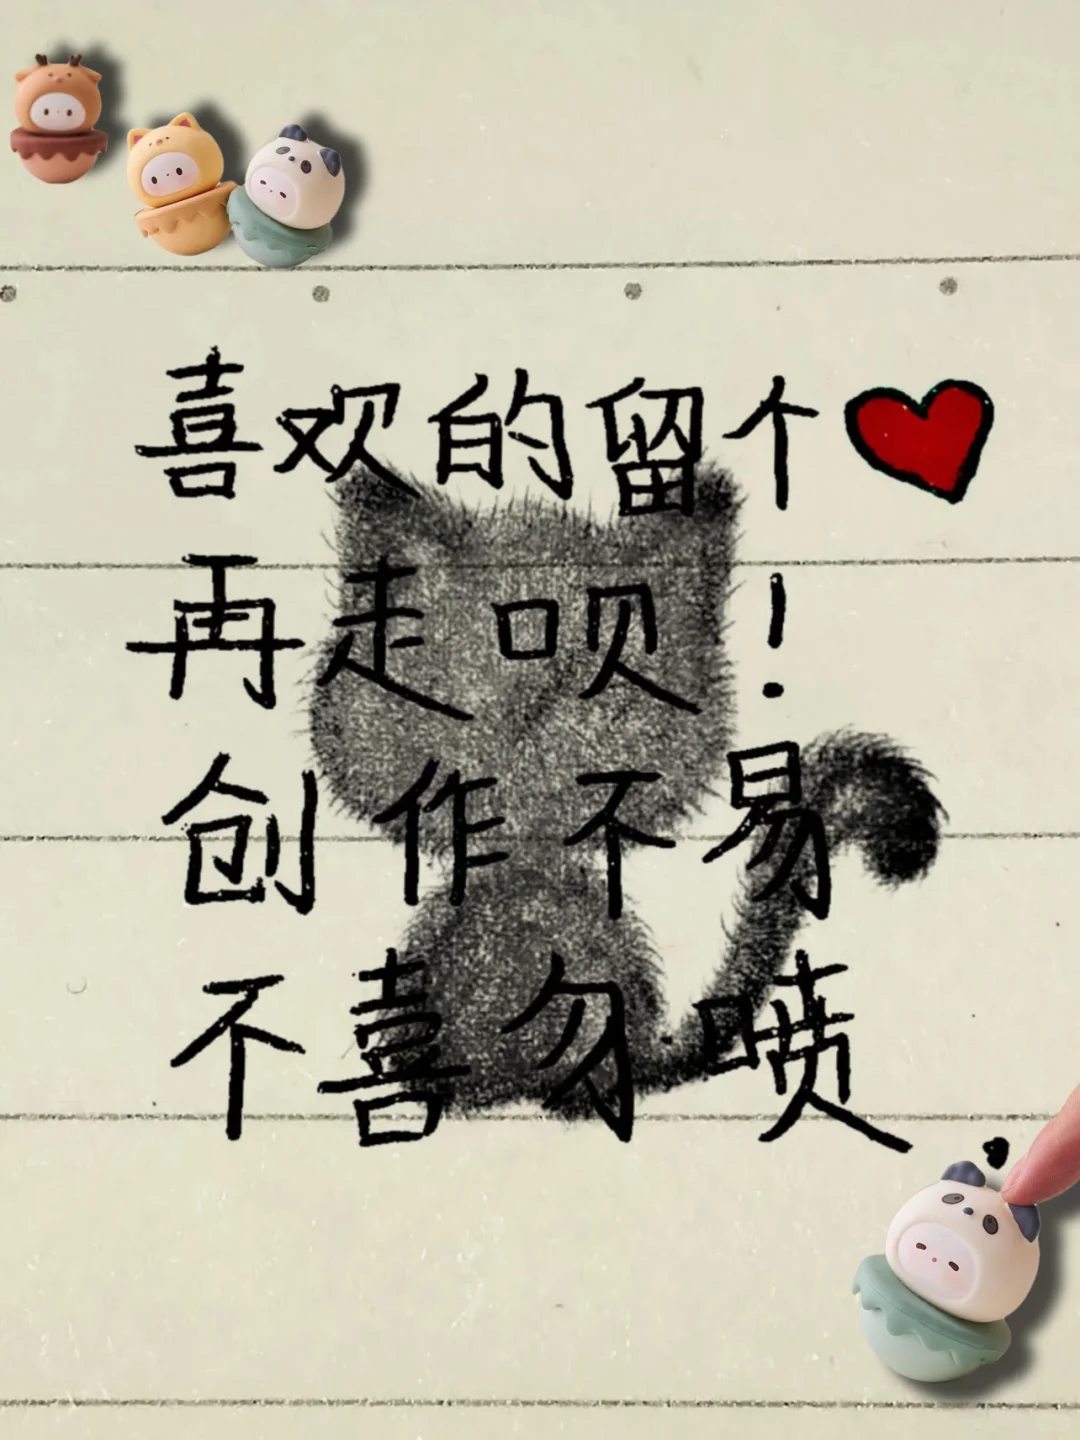 喜欢的留个❤
再走呗！
创作不易
不喜勿喷.